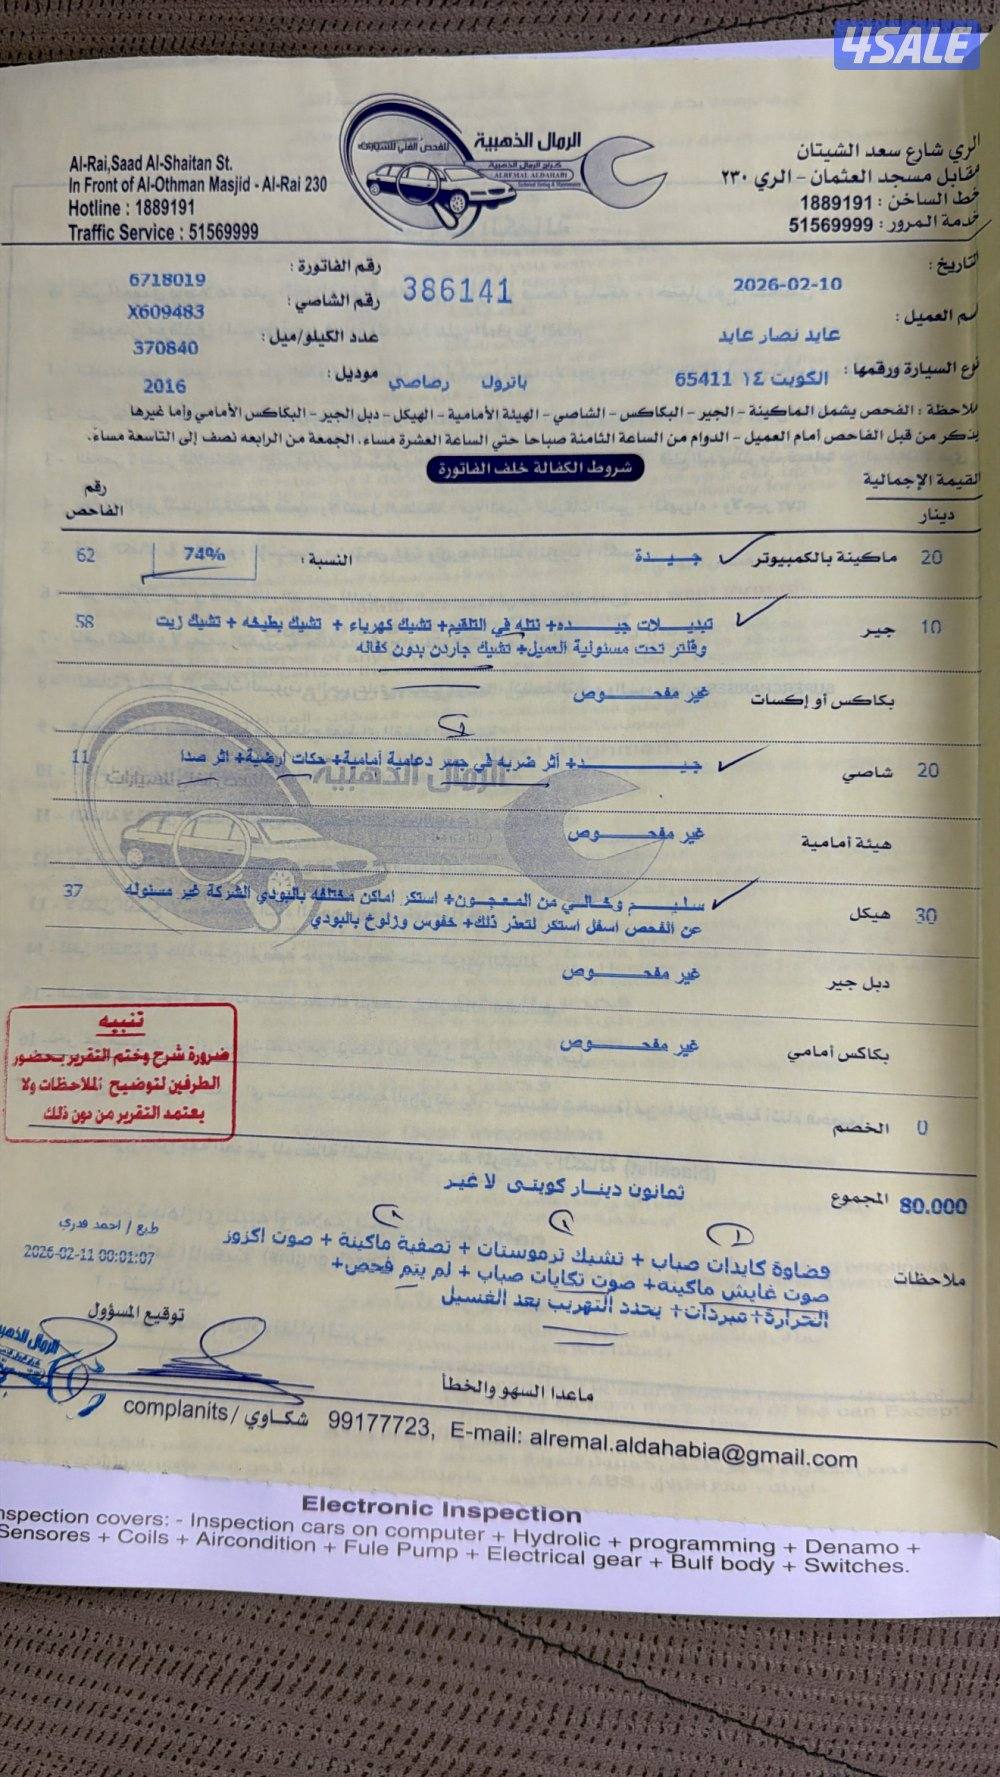 4SALE
الرمال الذهبية
للفحص الفني للسيارات
كراج الرمال الذهبية
ALREMAL ALDAHABI
Al-Rai,Saad Al-Shaitan St.
In Front of Al-Othman Masjid - Al-Rai 230
Hotline : 1889191
Traffic Service : 51569999
الري شارع سعد الشيتان
مقابل مسجد العثمان - الري ٢٣٠
خط الساخن : 1889191
خدمة المرور : 51569999
التاريخ : 2026-02-10
386141
رقم الفاتورة : 6718019
اسم العميل : عايد نصار عايد
رقم الشاصي : X609483
عدد الكيلو/ميل : 370840
نوع السيارة ورقمها : الكويت ١٤ 65411 باترول رصاصي
موديل : 2016
ملاحظة : الفحص يشمل الماكينة - الجير - البكاكس - الشاصي - الهيئة الأمامية - الهيكل - دبل الجير - البكاكس الأمامي وأما غيرها
يذكر من قبل الفاحص أمام العميل - الدوام من الساعة الثامنة صباحا حتي الساعة العشرة مساء، الجمعة من الرابعه نصف إلى التاسعة مساء.
شروط الكفالة خلف الفاتورة
القيمة الإجمالية
دينار
رقم الفاحص
20 ماكينة بالكمبيوتر جيدة النسبة : 74% 62
10 جير تبديلات جيده+ نتله في التلقيم+ تشيك كهرباء + تشيك بطيخه + تشيك زيت 58
وفلتر تحت مسئولية العميل+ تشيك جاردن بدون كفاله
بكاكس أو إكسات غير مفحوص
20 شاصي جيد+ أثر ضربه في جسر دعامية أمامية+ حكات أرضية+ اثر صدا 11
هيئة أمامية غير مفحوص
30 هيكل سليم وخالي من المعجون+ استكر اماكن مختلفه بالبودي الشركة غير مسئوله 37
عن الفحص اسفل استكر لتعذر ذلك+ خفوس وزلوخ بالبودي
دبل جير غير مفحوص
بكاكس أمامي غير مفحوص
تنبيه
ضرورة شرح وختم التقرير بحضور
الطرفين لتوضيح الملاحظات ولا
يعتمد التقرير من دون ذلك
0 الخصم
80.000 المجموع ثمانون دينار كويتى لا غير
ملاحظات
فضاوة كايدات صباب + تشيك ترموستات + تصفية ماكينة + صوت اكزوز
صوت غايش ماكينه+ صوت تكايات صباب + لم يتم فحص+
الحرارة+ مبردات+ يحدد التهريب بعد الغسيل
طبع / احمد قدري
2026-02-11 00:01:07
توقيع المسؤول
ماعدا السهو والخطأ
complanits / شكاوي 99177723, E-mail: alremal.aldahabia@gmail.com
Electronic Inspection
nspection covers: - Inspection cars on computer + Hydrolic + programming + Denamo +
Sensores + Coils + Aircondition + Fule Pump + Electrical gear + Bulf body + Switches.